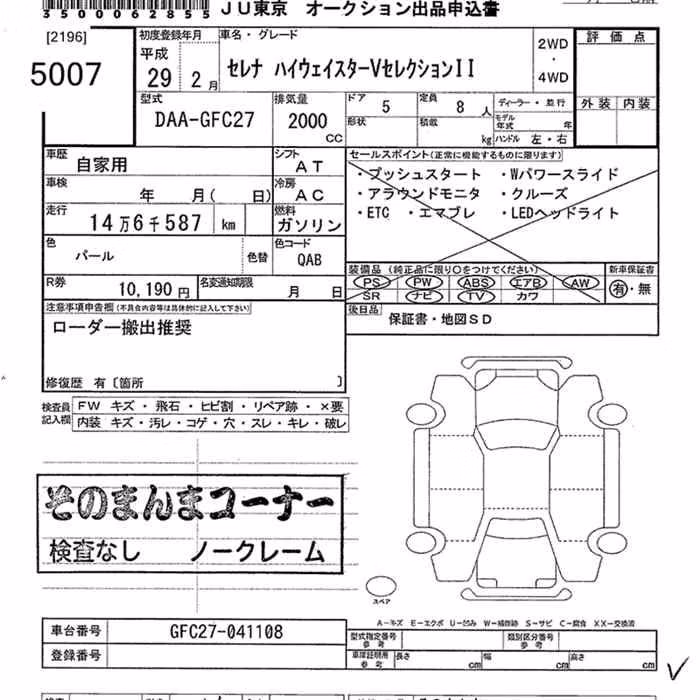 35006285 5
JU東京 オークション出品申込書
[2196]
5007
初度登録年月
平成
29 2 月
車名・グレード
セレナ ハイウェイスターVセレクションII
2WD
・
4WD
評価点
外装 内装
型式
DAA-GFC27
排気量
2000
CC
ドア 5
定員 8 人
形状
積載 kg
ディーラー・並行
モデル年式 年
ハンドル 左・右
車歴
自家用
シフト
AT
車検
年 月( 日)
冷房
AC
走行
14万6千587 km
燃料
ガソリン
色
パール
色替
色コード
QAB
R券
10,190円
名変通知期限
月 日
セールスポイント(正常に機能するものに限ります)
・プッシュスタート ・Wパワースライド
・アラウンドモニタ ・クルーズ
・ETC ・エマブレ ・LEDヘッドライト
装備品 (純正品に限り○をつけてください)
PS PW ABS エアB AW
SR ナビ TV カワ
新車保証書
有・無
後日品
保証書・地図SD
注意事項申告欄(不具合内容等は具体的に記入して下さい)
ローダー搬出推奨
修復歴 有〔箇所 〕
検査員記入欄
FW キズ・飛石・ヒビ割・リペア跡・×要
内装 キズ・汚レ・コゲ・穴・スレ・キレ・破レ
そのまんまコーナー
検査なし ノークレーム
スペア
A-キズ E-エクボ U-凹み W-補修跡 S-サビ C-腐食 XX-交換済
車台番号
GFC27-041108
登録番号
型式指定番号
参考
類別区分番号
参考
車庫証明用
参考
長さ cm
幅 cm
高さ cm